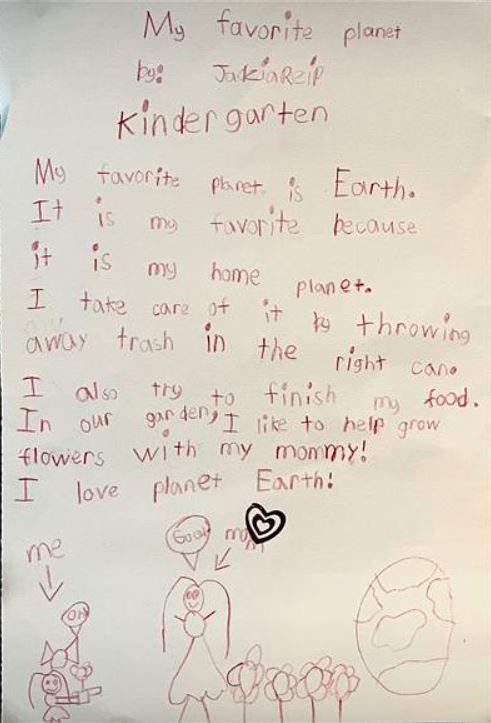 My favorite planet
by: JakiaReip
Kindergarten
My favorite planet is Earth.
It is my favorite because
it is my home planet.
I take care of it by throwing
away trash in the right can.
I also try to finish my food.
In our garden, I like to help grow
flowers with my mommy!
I love planet Earth!
Good mom
me